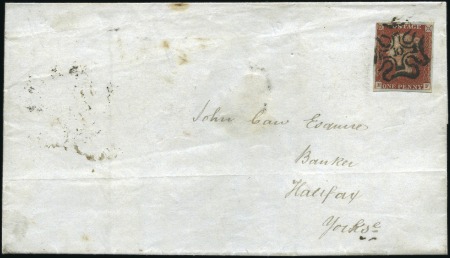 POSTAGE
ONE PENNY
John Caw Esquire
Banker
Halifax
Yorks.e